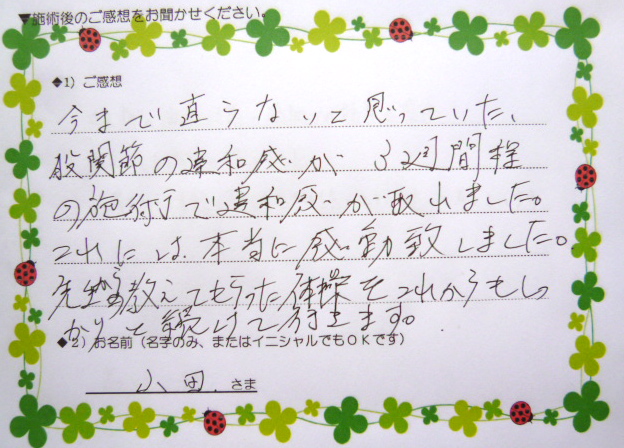 ▼施術後のご感想をお聞かせください。
◆1）ご感想
今まで直らないと思っていた、
股関節の違和感が3週間程
の施術で違和感が取れました。
これには、本当に感動致しました。
先生から教えてもらった体操をこれからもしっ
かりと続けて行きます。
◆2）お名前（名字のみ、またはイニシャルでもOKです）
小田 さま